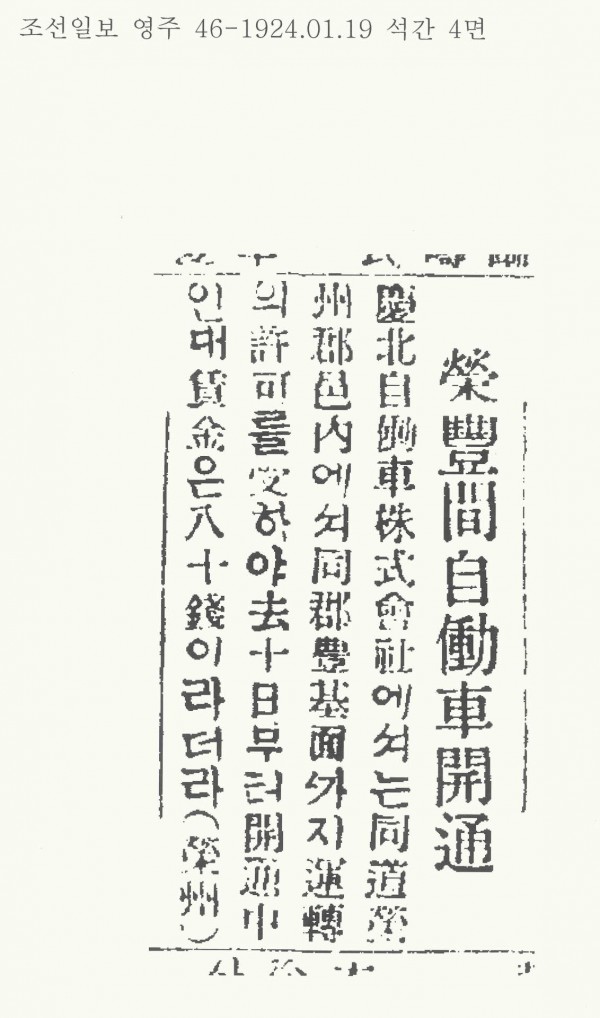 조선일보 영주 46-1924.01.19 석간 4면
榮豐間自働車開通
慶北自働車株式會社에셔는同道榮
州郡邑內에셔同郡豊基面ᄭᅡ지運轉
의許可를受하야去十日부터開通中
인대賃金은八十錢이라더라(榮州)